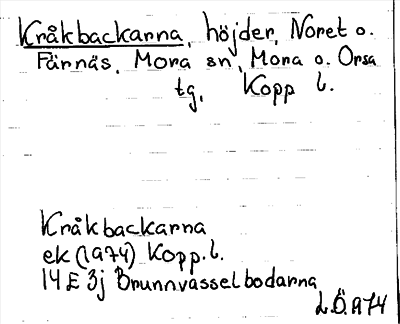 Kråkbackarna, höjder, Noret o.
Färnäs, Mora sn, Mora o. Orsa
tg, Kopp l.
Kråkbackarna
ek (1974) Kopp. l.
14 E 3j Brunnvasselbodarna
L.Ö. 1974